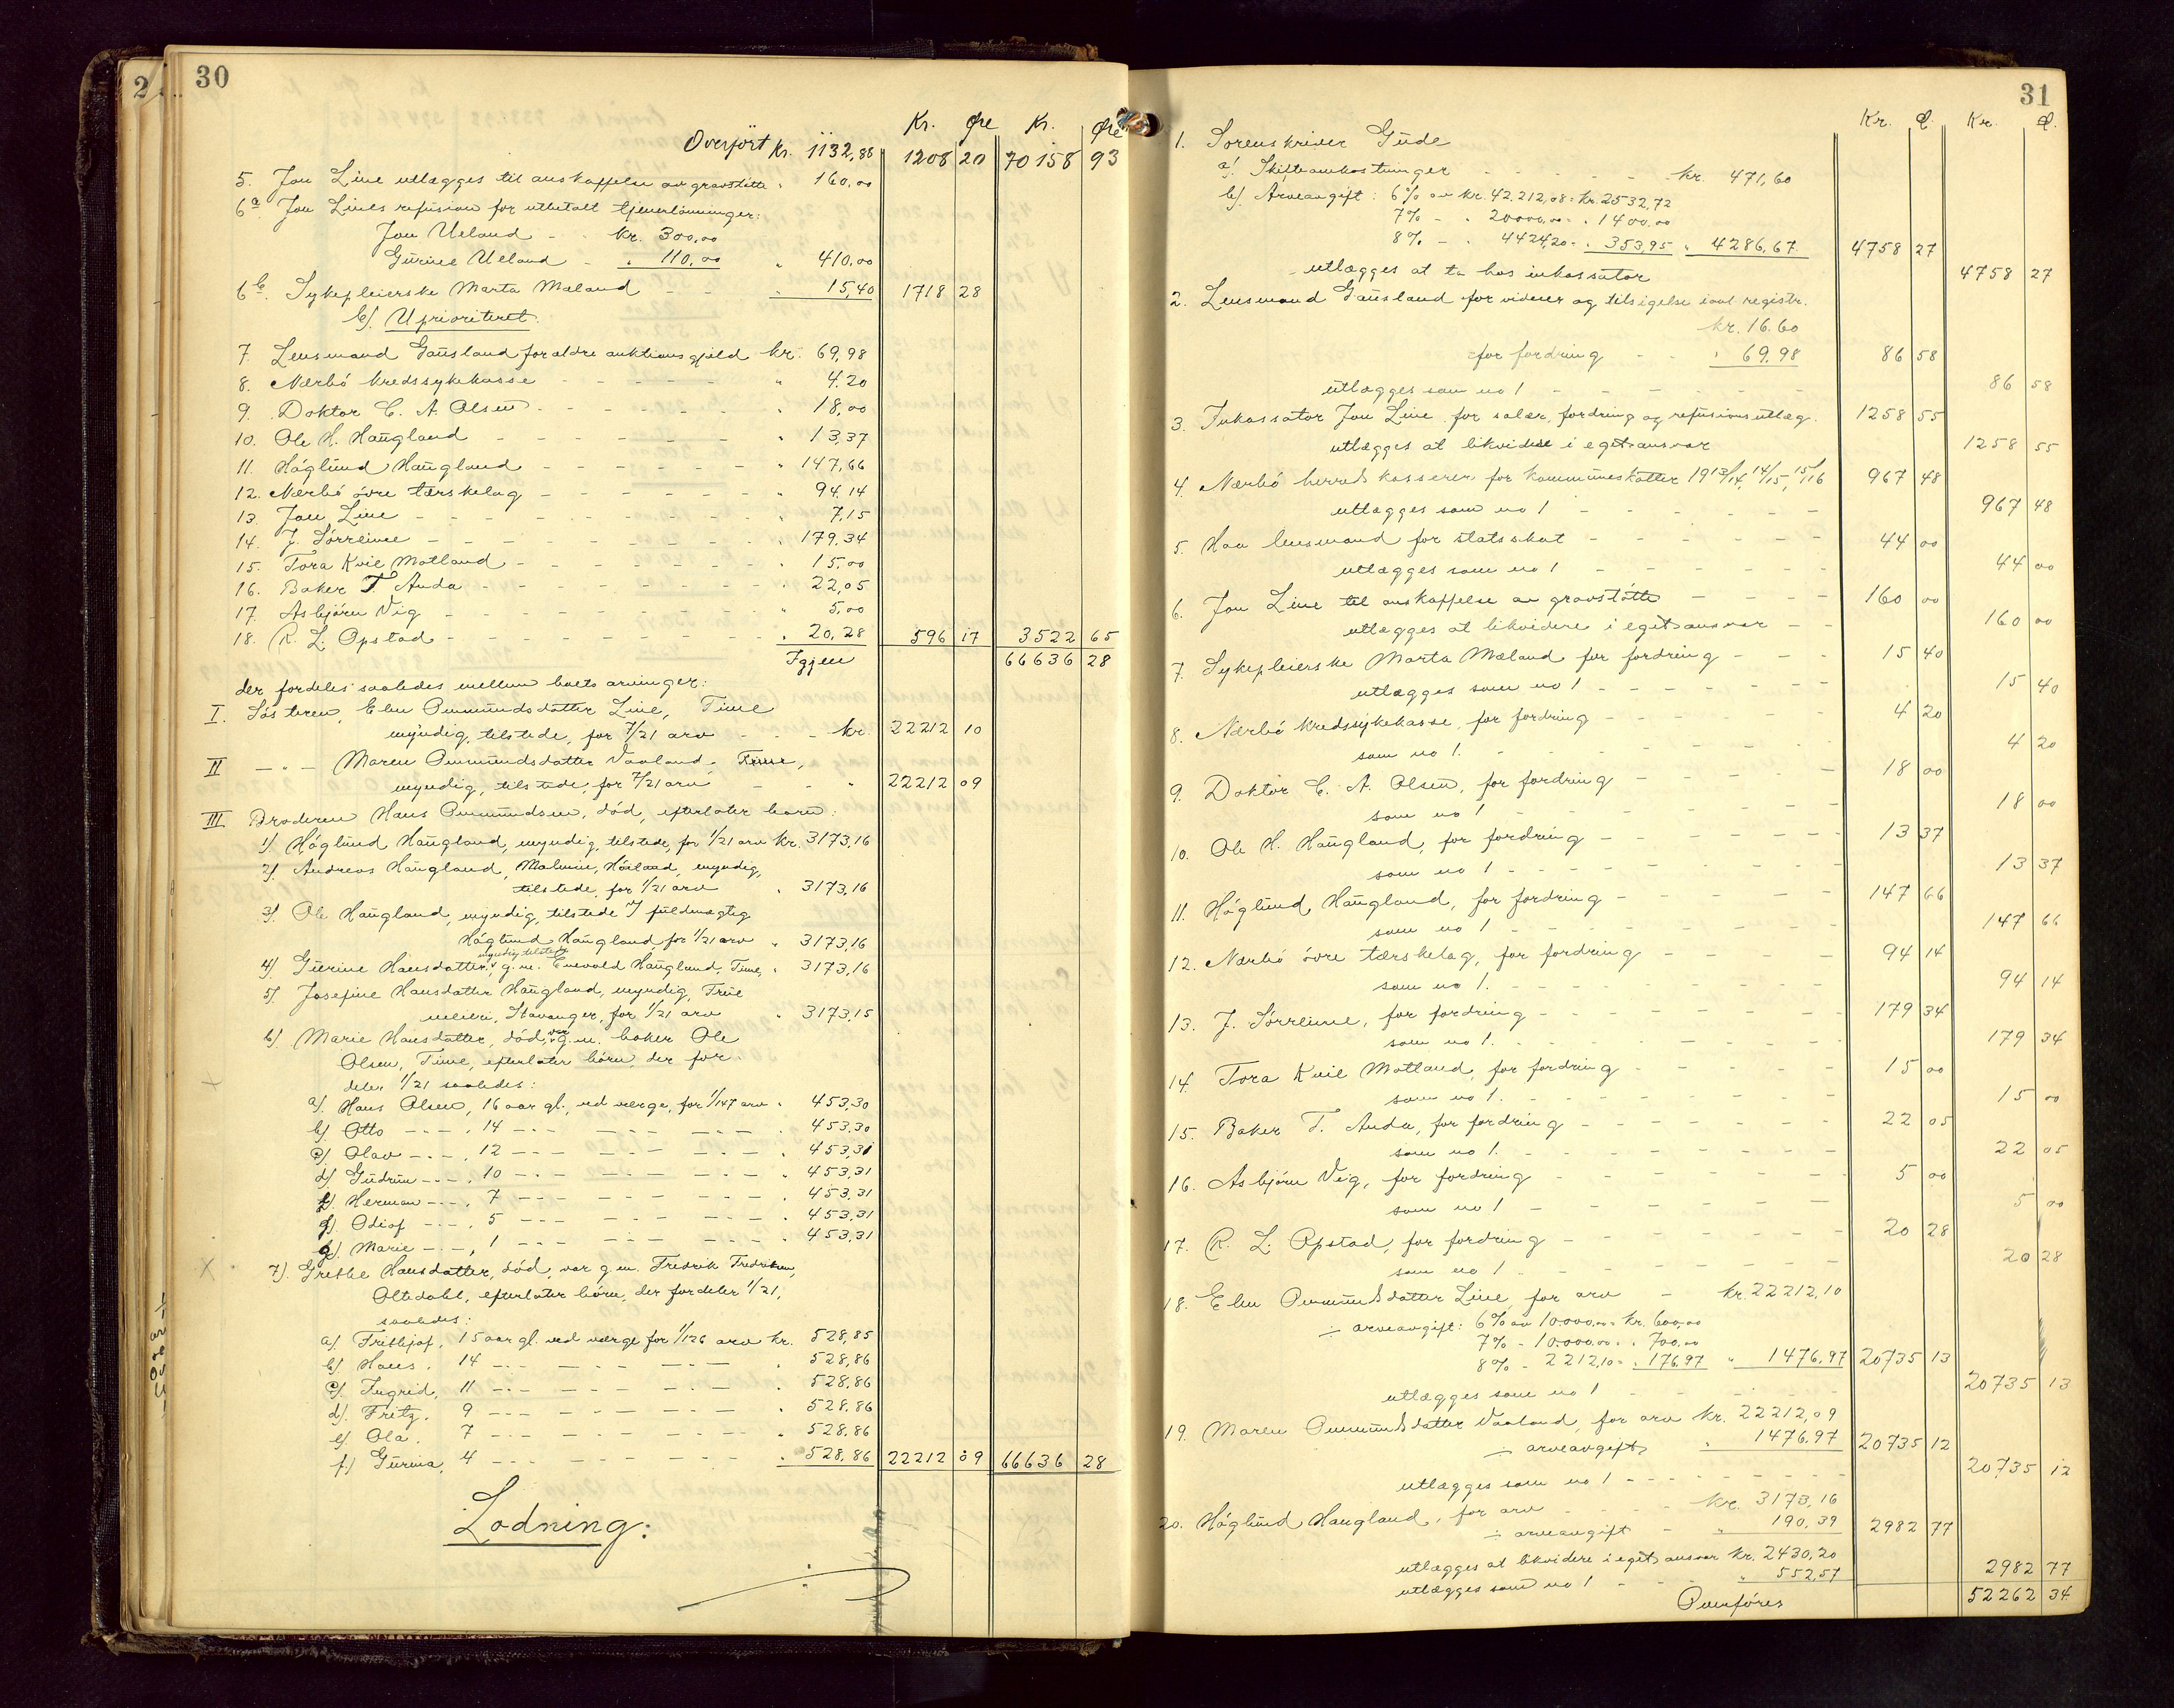 2
30
Kr. Øre Kr. Øre
Overført kr. 1132,88 1208 20 70158 93
5. Jon Line utlægges til anskaffelse av gravstötte " 160,00
6a. Jon Lines refusion for utbetalt tjenerlönninger:
Jon Ueland - - kr. 300,00
Gurine Ueland - " 110,00 " 410,00
6b. Sykepleierske Marta Mæland - - " 15,40 1718 28
b). Uprioritert.
7. Lensmand Gausland for ældre auktionsgjæld kr. 69,98
8. Nærbö kredssykekasse - - - - - " 4.20
9. Doktor C. A. Olsen - - - - - " 18,00
10. Ole H. Haugland - - - - - " 13,37
11. Höglund Haugland - - - - - " 147,66
12. Nærbö övre tærskelag - - - - - " 94,14
13. Jon Line - - - - - - " 7,15
14. J. Sörreime - - - - - - " 179,34
15. Tora Kvie Motland - - - - - " 15,00
16. Baker T. Anda - - - - - " 22,05
17. Asbjörn Vig - - - - - - " 5,00
18. R. L. Opstad - - - - - - " 20,28 596 17 3522 65
Igjen 66636 28
der fordeles saaledes mellem boets arvinger:
I. Sösteren, Elen Ommundsdatter Line, Time
myndig, tilstede, for 7/21 arv - - - kr. 22212 10
II - " - Maren Ommundsdatter Vaaland, Time,
myndig, tilstede, for 7/21 arv - - " 22212 09
III Broderen Hans Ommundsen, död, efterlater barn:
1). Höglund Haugland, myndig, tilstede, for 1/21 arv kr. 3173,16
2). Andreas Haugland, Malmin, Höiland, myndig,
tilstede, for 1/21 arv " 3173,16
3). Ole Haugland, myndig, tilstede v/ fuldmægtig
Höglund Haugland, for 1/21 arv " 3173,16
myndig, tilstede
4). Gurine Hansdatter, g.m. Enevald Haugland, Time, " 3173,16
5). Josefine Hansdatter Haugland, myndig, Frue
meieri, Stavanger, for 1/21 arv " 3173,15
6). Marie Hansdatter, död, var g.m. baker Ole
Olsen, Time, efterlater börn, der for-
deler 1/21 saaledes:
a). Hans Olsen, 16 aar gl., ved verge, for 1/147 arv " 453,30
b). Otto - - - , 14 - - - - - - " 453,30
c). Olav - - - , 12 - - - - - - " 453,31
d). Gudrun - - - , 10 - - - - - - " 453,31
e). Herman - - - , 7 - - - - - - " 453,31
f). Odjof - - - , 5 - - - - - - " 453,31
g). Marie - - - , 1 - - - - - - " 453,31
7). Grethe Hansdatter, död, var g.m. Fredrik Fredriksen,
Oltedahl, efterlater börn, der fordeler 1/21,
saaledes:
a). Frithjof, 15 aar gl. ved værge for 1/126 arv kr. 528,85
b). Hans, 14 - - - - - - " 528,86
c). Ingrid, 11 - - - - - - " 528,86
d). Fritz, 9 - - - - - - " 528,86
e). Ola, 7 - - - - - - " 528,86
f). Gurina, 4 - - - - - - " 528,86 22212 09 66636 28
Lodning:
31
Kr. Ø. Kr. Ø.
1. Sorenskriver Gude
a). Skifteomkostninger - - - - - kr. 471,60
b). Arveavgift: 6% av kr. 42.212,08 = kr. 2532,72
7% - " 20000,00 = " 1400,00
8% - " 4424,20 = " 353,95 " 4286,67 4758 27
utlægges at ta hos inkassator 4758 27
2. Lensmand Gausland for vidner og tilsigelse iaal registr.
kr. 16.60
for fordring - - " 69,98 86 58
utlægges som no 1 - - - - - 86 58
3. Inkassator Jon Line for salær, fordring og refusionsutlæg. 1258 55
utlægges at likvidere i eget ansvar 1258 55
4. Nærbö herreds kasserer for kommuneskatter 1913/14, 14/15, 15/16 967 48
utlægges som no 1 - - - - - 967 48
5. Haa lensmand for statsskat - - - - - 44 00
utlægges som no 1 - - - - - 44 00
6. Jon Line til anskaffelse av gravstötte - - - - 160 00
utlægges at likvidere i eget ansvar - - 160 00
7. Sykepleierske Marta Mæland for fordring - - - 15 40
utlægges som no 1 - - - - - 15 40
8. Nærbö kredssykekasse, for fordring - - - - - 4 20
som no 1. - - - - - 4 20
9. Doktor C. A. Olsen, for fordring - - - - 18 00
som no 1 - - - - - 18 00
10. Ole H. Haugland, for fordring - - - - - 13 37
som no 1 - - - - - 13 37
11. Höglund Haugland, for fordring - - - - - 147 66
som no 1 - - - - - 147 66
12. Nærbö övre tærskelag, for fordring - - - - 94 14
som no 1. - - - - - 94 14
13. J. Sörreime, for fordring - - - - - 179 34
som no 1. - - - - - 179 34
14. Tora Kvie Motland, for fordring - - - - 15 00
som no 1. - - - - - 15 00
15. Baker T. Anda, for fordring - - - - - 22 05
som no 1. - - - - - 22 05
16. Asbjörn Vig, for fordring - - - - - 5 00
som no 1 - - - - - 5 00
17. R. L. Opstad, for fordring - - - - - 20 28
som no 1 - - - - - 20 28
18. Elen Ommundsdatter Line for arv - kr. 22212,10
÷ arveavgift: 6% av 10000,00 = kr. 600,00
7% - 10.000,00 = " 700,00
8% - 2212,10 = " 176,97 " 1476,97 20735 13
utlægges som no 1 - - - - - 20735 13
19. Maren Ommundsdatter Vaaland, for arv kr. 22212,09
÷ arveavgift " 1476,97 20735 12
utlægges som no 1 - - - - - 20735 12
20. Höglund Haugland, for arv - - - - kr. 3173,16
÷ arveavgift - " 190,39 2982 77
utlægges at likvidere i eget ansvar kr. 2430,20
utlægges som no 1 - - - " 552,57 2982 77
Overföres 52262 34